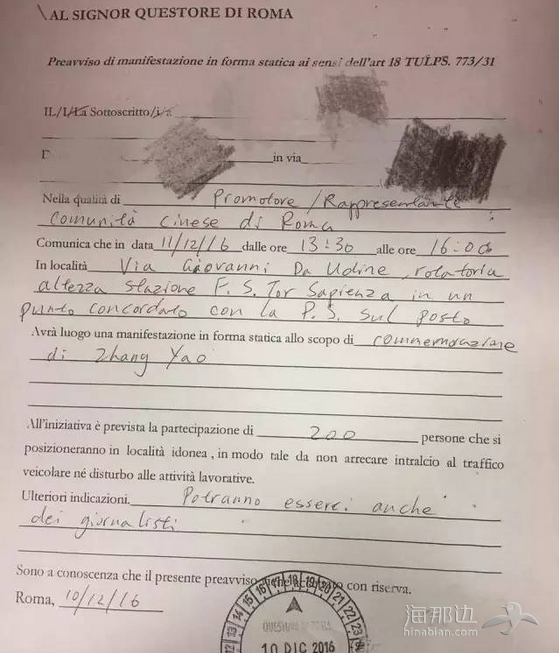 AL SIGNOR QUESTORE DI ROMA
Preavviso di manifestazione in forma statica ai sensi dell'art 18 TULPS. 773/31
IL/I/La Sottoscritto/i/a
in via
Nella qualità di Promotore/Rappresentante
comunità cinese di Roma
Comunica che in data 11/12/16 dalle ore 13:30 alle ore 16:00
In località Via Giovanni Da Udine, rotatoria
altezza stazione F.S. Tor Sapienza in un
punto concordato con la P.S. sul posto
Avrà luogo una manifestazione in forma statica allo scopo di commemorazione
di Zhang Yao
All'iniziativa è prevista la partecipazione di 200 persone che si
posizioneranno in località idonea , in modo tale da non arrecare intralcio al traffico
veicolare né disturbo alle attività lavorative.
Ulteriori indicazioni. Potranno esserci anche
dei giornalisti
Sono a conoscenza che il presente preavviso con riserva.
Roma, 10/12/16
12 13 14 15 16 17 18 19 20 21 22 23
QUESTURA DI ROMA
10 DIC 2016
海那边
hinabian.com